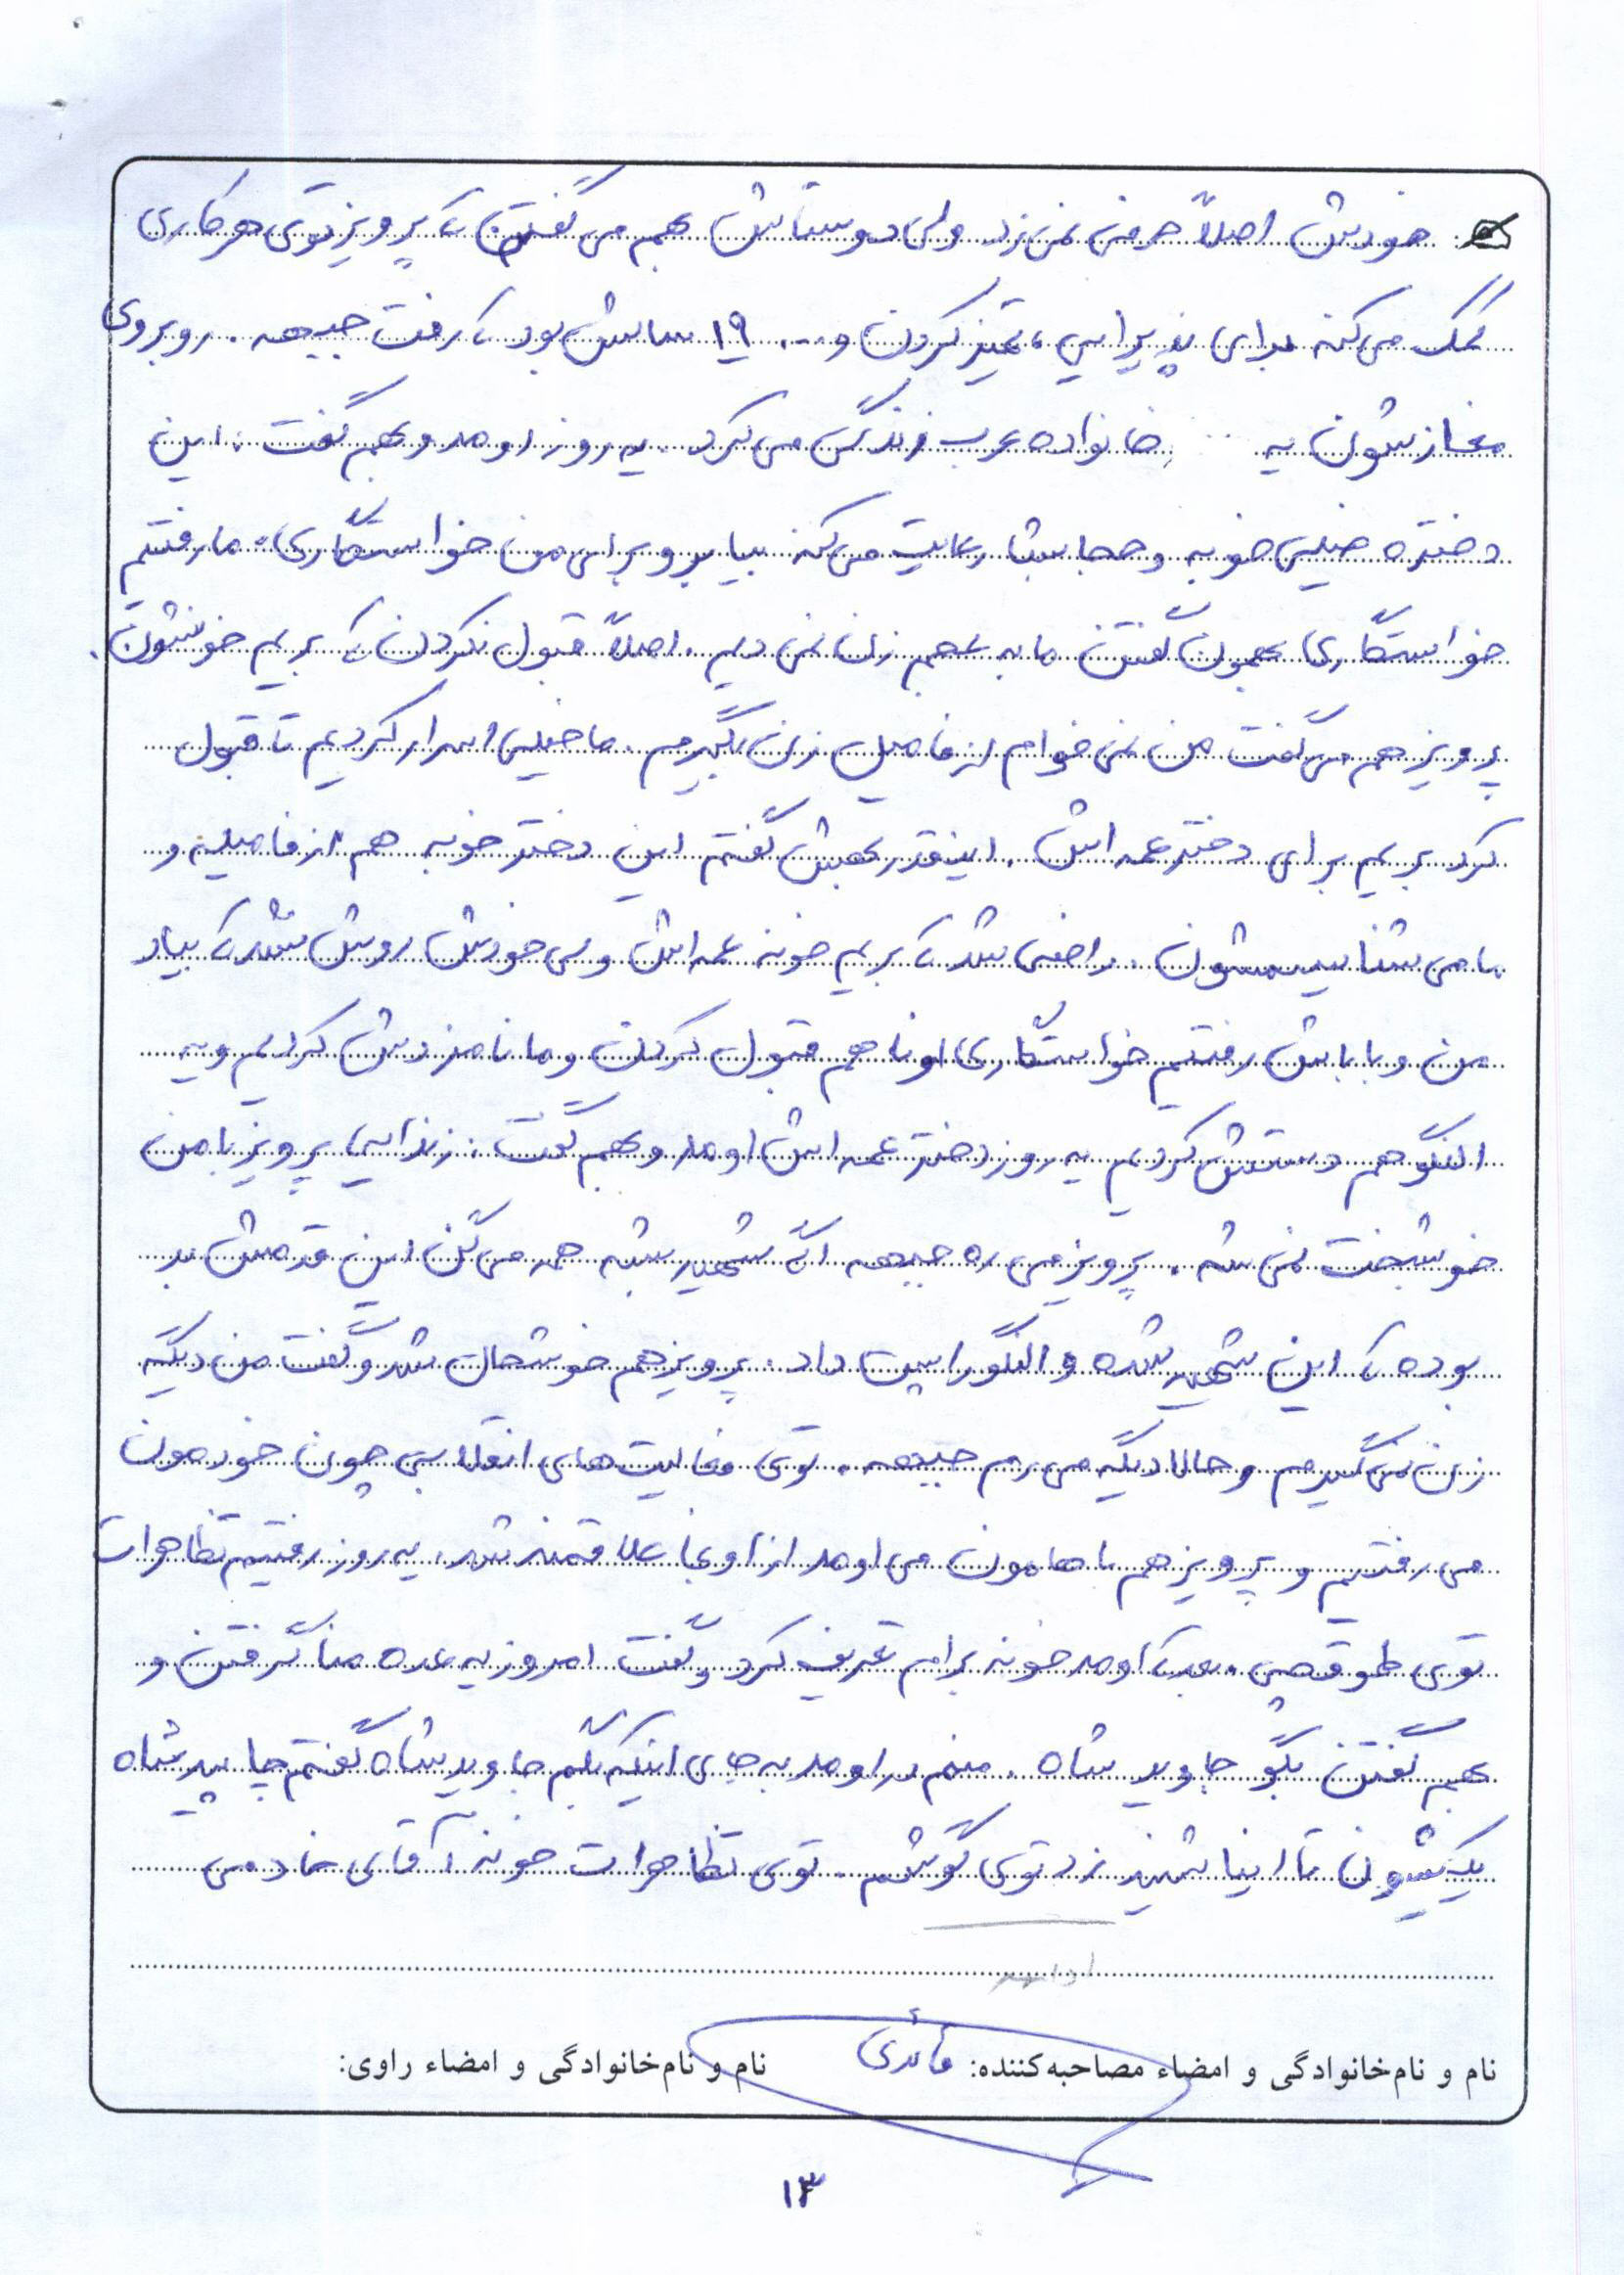 خودش اصلاً حرفی نمی‌زد ولی دوستاش بهم می گفتن که پرویز توی هر کاری
کمک می کنه برای پذیرایی، تمیز کردن و ... ۱۹ سالش بود که رفت جبهه. روبروی
مغازشون یه خانواده عرب زندگی می کرد. یه روز اومد و بهم گفت: این
دختره خیلی خوبه و حجابشا رعایت می کنه بیا برو برای من خواستگاری. ما رفتیم
خواستگاری بهمون گفتن ما به عجم زن نمی دیم. اصلاً قبول نکردن که بریم خونشون.
پرویز هم می گفت من نمی خوام از فامیل زن بگیرم. ما خیلی اسرار کردیم تا قبول
کرد بریم برای دختر عمه اش. اینقدر بهش گفتم این دختر خوبه هم از فامیله و
ما می شناسیمشون. راضی شد که بریم خونه عمه اش ولی خودش روش نشد که بیاد
من و باباش رفتیم خواستگاری اونا هم قبول کردن و ما نامزدش کردیم و یه
النگو هم دستش کردیم یه روز دختر عمه اش اومد و بهم گفت: زندایی پرویز با من
خوشبخت نمی شه. پرویز می ره جبهه اگه شهید بشه همه می گن این قدمش بد
بوده که این شهید شده و النگو را پس داد. پرویز هم خوشحال شد و گفت من دیگه
زن نمی گیرم و حالا دیگه می رم جبهه. توی فعالیت های انقلابی چون خودمون
می رفتیم و پرویز هم باهامون می اومد از اونجا علاقمند شد. یه روز رفتیم تظاهرات
توی طوقچی. بعد که اومد خونه برام تعریف کرد و گفت امروز یه عده منا گرفتن و
بهم گفتن بگو جاوید شاه. منم در اومد به جای اینکه بگم جاوید شاه گفتم چایید شاه
یکیشون تا اینا شنید زد توی گوشم. توی تظاهرات خونه آقای خادمی
ادامه
نام و نام‌خانوادگی و امضاء مصاحبه‌کننده: قائدی نام و نام‌خانوادگی و امضاء راوی:
۱۳